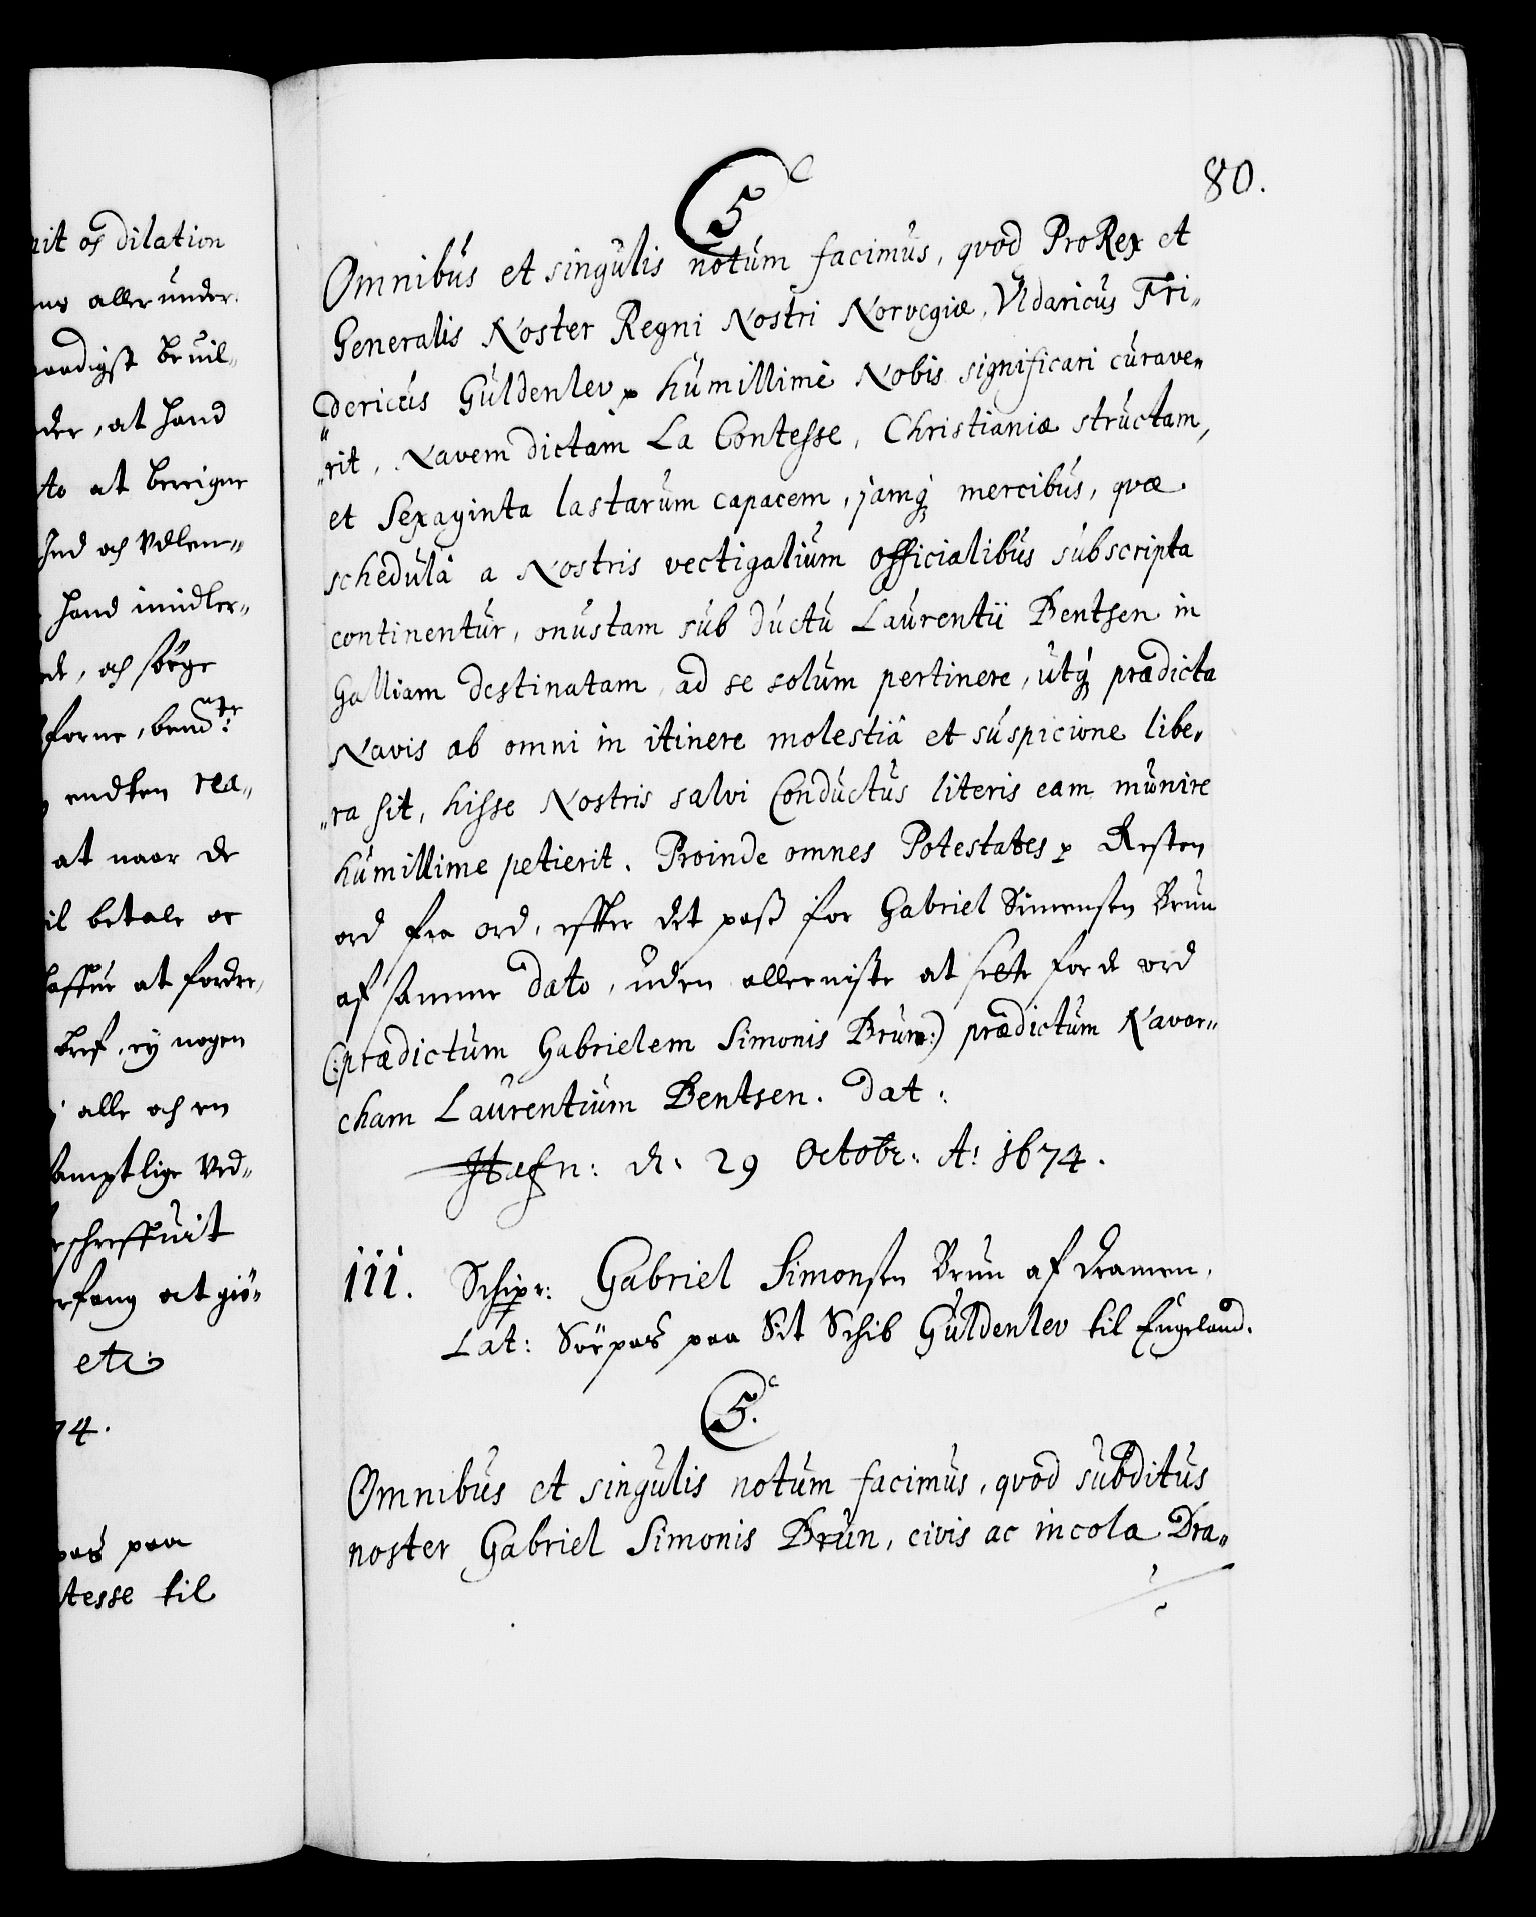 ait os dilation
ens aller under.
naadigst bevil„
der, at hand
to at berigne
Ind och Vdlen„
hand imidler„
de, och sørge
forne, bemte:
endten rea„
at naar de
il betale oc
at fordre,
bref, ej nogen
alle och en
samptlige Ved„
erfang at giö„
etc:
74.
pas paa
tesse til
80.
C5
Omnibus et singulis notum facimus, qvod ProRex et
Generalis Noster Regni Nostri Norvegiæ, Vldaricus Fri„
„dericus Guldenlev p humillimè Nobis significari curave„
„rit, Navem dictam La Contesse, Christianiæ structam,
et Sexaginta lastarum capacem, jamq; mercibus, qvæ
schedulâ a Nostris vectigalium officialibus subscripta
continentur, onustam sub ductu Laurentii Bentsen in
Galliam destinatam, ad se solum pertinere, utq; prædicta
Navis ab omni in itinere molestiâ et suspicione libe„
„ra sit, hisse Nostris salvi Conductus literis eam munire
humillime petierit. Proinde omnes Potestates p Resten
ord fra ord, efter det pass for Gabriel Simensen Brun
af samme dato, uden alleeniste at sette for de ord
(:prædictum Gabrielem Simonis Brun:) prædictum Navar„
cham Laurentium Bentsen. Dat:
Hafn: d: 29 Octobr: A: 1674.
111. Schipr: Gabriel Simonsen Brun af Dramen,
Lat: Söepas paa Sit Schib Guldenlev til Engeland.
C5.
Omnibus et singulis notum facimus, qvod subditus
noster Gabriel Simonis Brun, civis ac incola Dra„